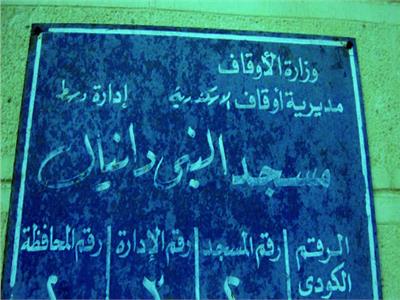 وزارة الأوقاف
مديرية أوقاف الاسكندرية إدارة وسط
مسجد النبى دانيال
الرقم الكودى رقم المسجد رقم الإدارة رقم المحافظة